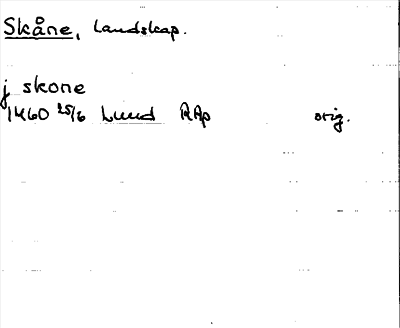 Skåne, Landskap.
j skone
1460 25/6 Lund RAp orig.